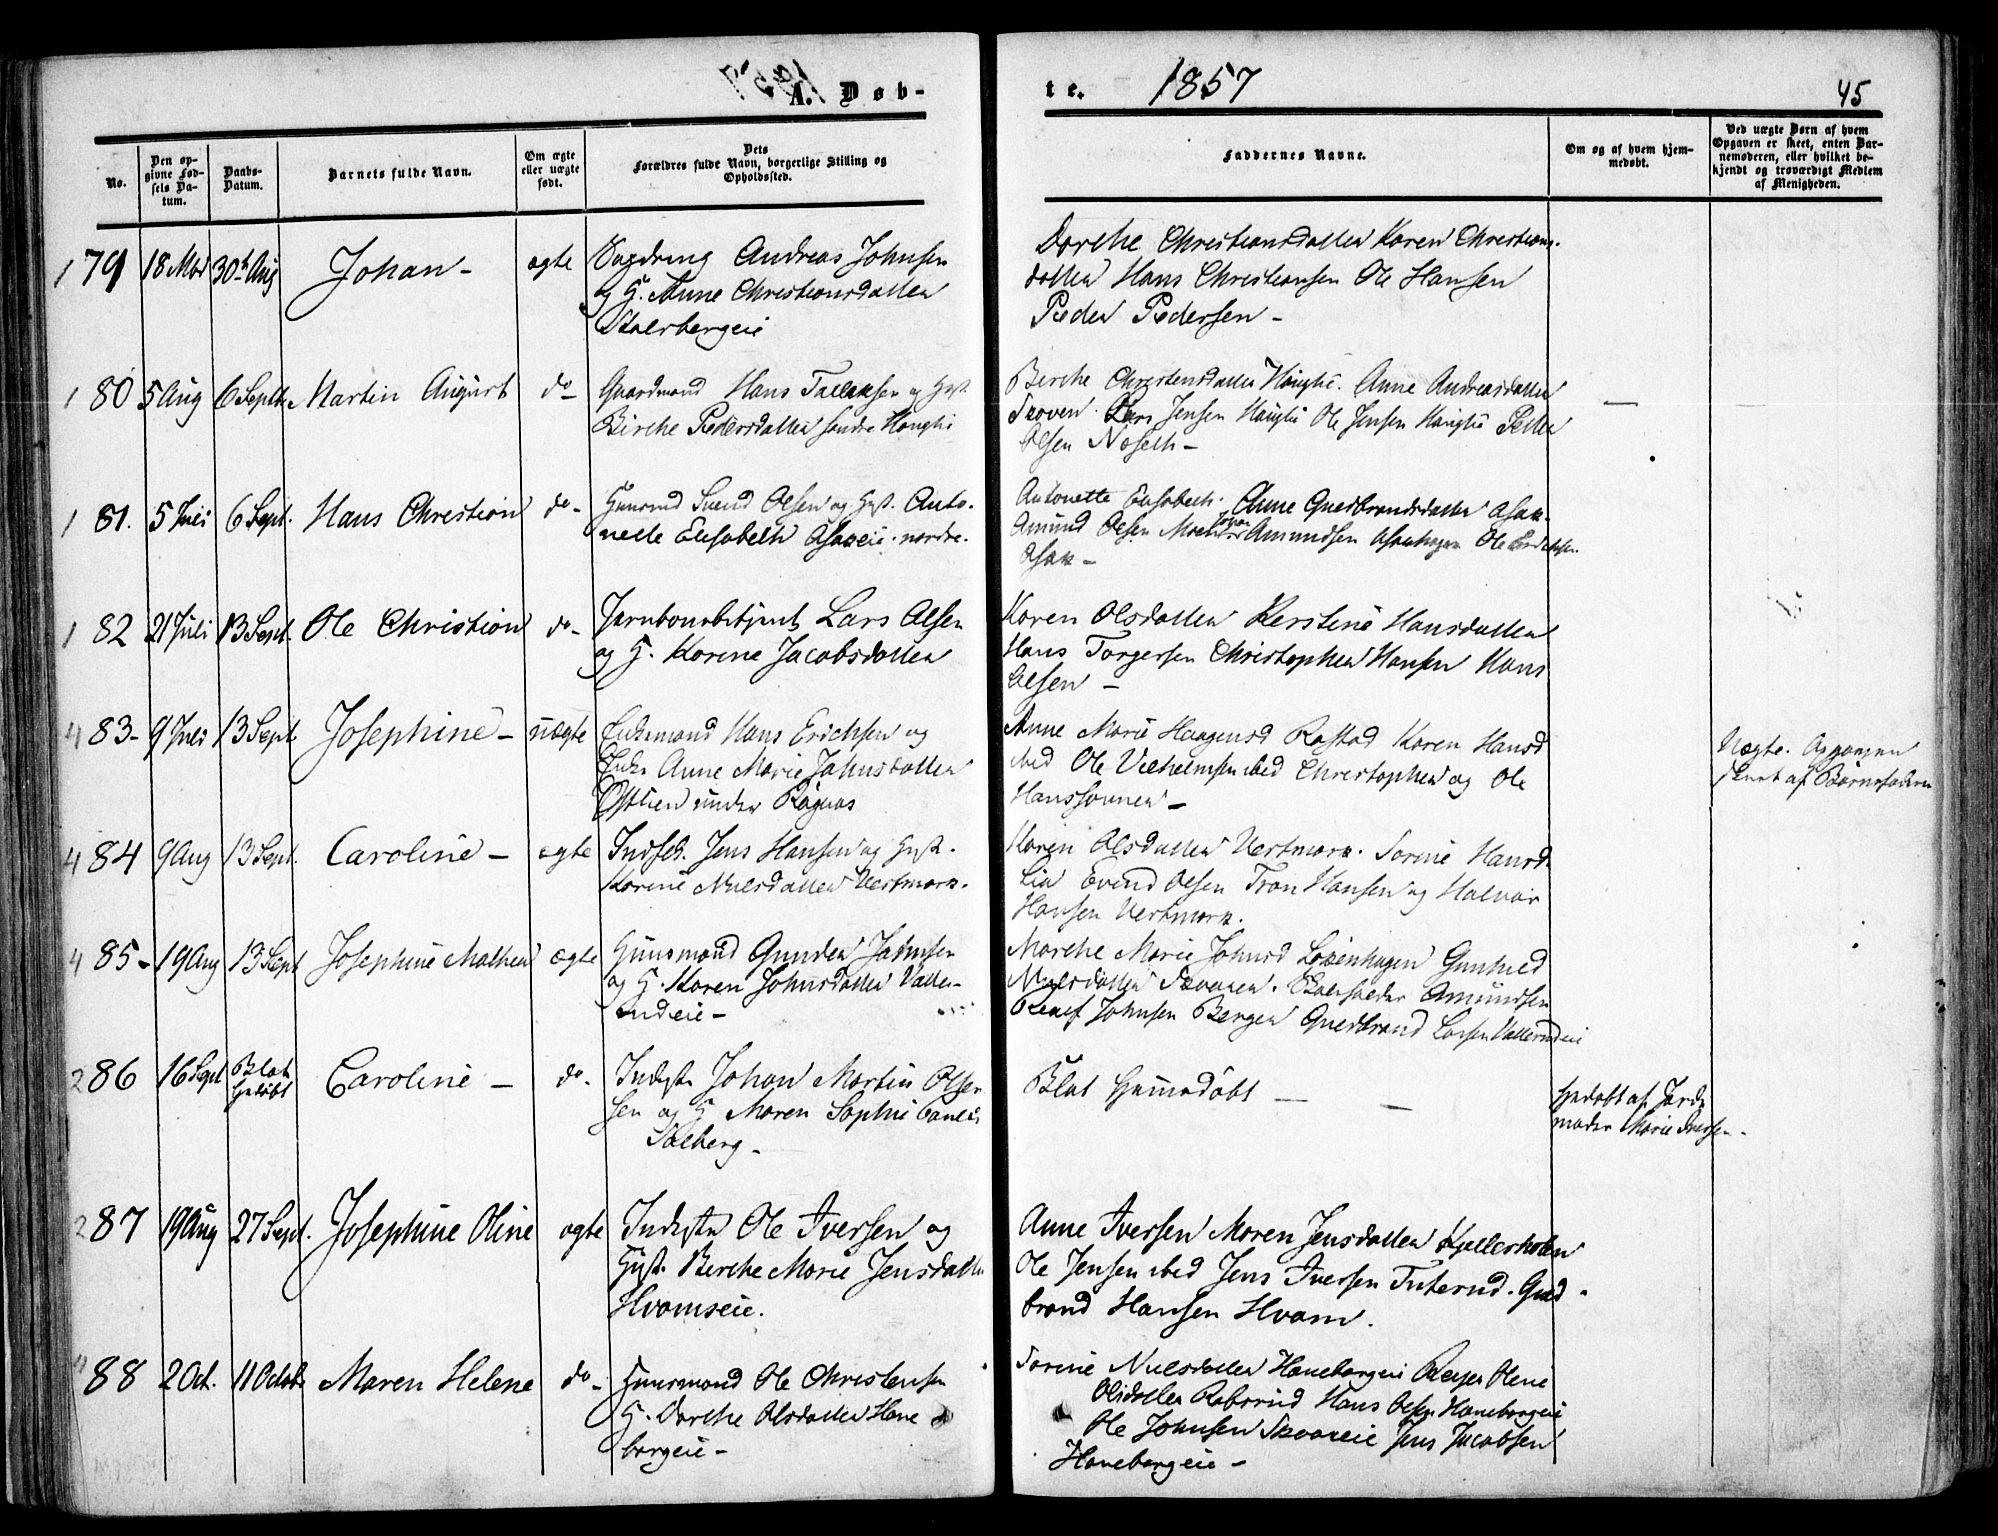 A. Døb-
te. 1857 45
No.
Den op-
givne Fød-
sels Da-
tum.
Daabs-
Datum.
Barnets fulde Navn.
Om ægte
eller uægte
født.
Dets
Forældres fulde Navn, borgerlige Stilling og
Opholdssted.
Faddernes Navne.
Om og af hvem hjem-
medøbt.
Ved uægte Børn af hvem
Opgaven er skeet, enten Bar-
nemoderen, eller hvilket be-
kjendt og troværdigt Medlem
af Menigheden.
79 18 Mai 30th Aug Johan - ægte
Andreas Johnsen
og H. Anne Christiansdatter
Dorthe Christiansdatter Karen Christians
datter Hans Christiansen Ole Hansen
Peder Pedersen -
80 5 Aug 6 Septb. Martin August do -
Gaardmand Hans Tollefsen og Hust.
Birthe Pedersdatter søndre Haugli
Berthe Christensdatter Haugli. Anne Andreasdatter
Skoven. Lars Jensen Haugli Ole Jensen Haugli Petter
Olsen Noseth -
81. 5 Juli 6 Sept. Hans Christian do -
Huusmd Svend Olsen og Hust. Anto-
nette Elisabeth Asakeie nordre.
Antonette Elisabeth. Anne Guldbrandsdatter Asak.
Amund Olsen Amundsen Asakhagen Ole
Asak -
82 21 Juli 13 Sept. Ole Christian do -
Jernbanebetjent Lars Olsen
og H. Karine Jacobsdatter
Karen Olsdatter Kerstine Hansdatter
Hans Torgersen Christopher Hansen Hans
Olsen -
83 - 9 Juli 13 Sept Josephine - uægte
Enkemand Hans Erichsen og
Enke Anne Marie Johnsdatter
Østlien under
Anne Marie Haagensd Rastad Karen Hansd
ibid Ole Vilhelmsen ibid Christopher og Ole
Hanssønner -
Uægte. Opgaven
skeet af Barnefaderen
84 9 Aug 13 Sept. Caroline - ægte
Indsid. Jens Hansen og Hust.
Karine Nielsdatter Vestmork.
Karen Olsdatter Vestmork. Sorine Hansd
Lia Evend Olsen Tron Hansen og Halvor
Hansen Vestmork.
85 - 19 Aug 13 Sept Josephine Mathea ægte
Huusmand Gunder Johnsen
og H. Karen Johnsdatter Valle-
rudeie -
Marthe Marie Johnsd Løkenhagen Gunhild
Nielsdatter Amundsen
Johnsen Bergen Guldbrand Larsen Vallerudeie
86 16 Sept Blot
Hjdøbt Caroline - do -
Inderst Johan Martin Olsen
sen og H Maren Sophie
Solberg -
Blot Hjemmedøbt -
Hjdøbt af Jorde
moder Marie Iversen -
87 19 Aug 27 Sept. Josephine Oline ægte
Inderst Ole Iversen og
Hust. Berthe Marie Jensdatter
Hvamseie.
Anne Iversen Maren Jensdatter Kjellerholen
Ole Jensen ibid Jens Iversen Guld-
brand Hansen Hvam.
88 2 Oct. 11 Octob. Maren Helene do -
Huusmand Ole Christensen
H. Dorthe Olsdatter Hane
borgeie -
Sorine Nielsdatter Haneborgeie Oline
Olsdatter Hans Olsen Haneborgeie
Ole Johnsen Jens Jacobsen
Haneborgeie -